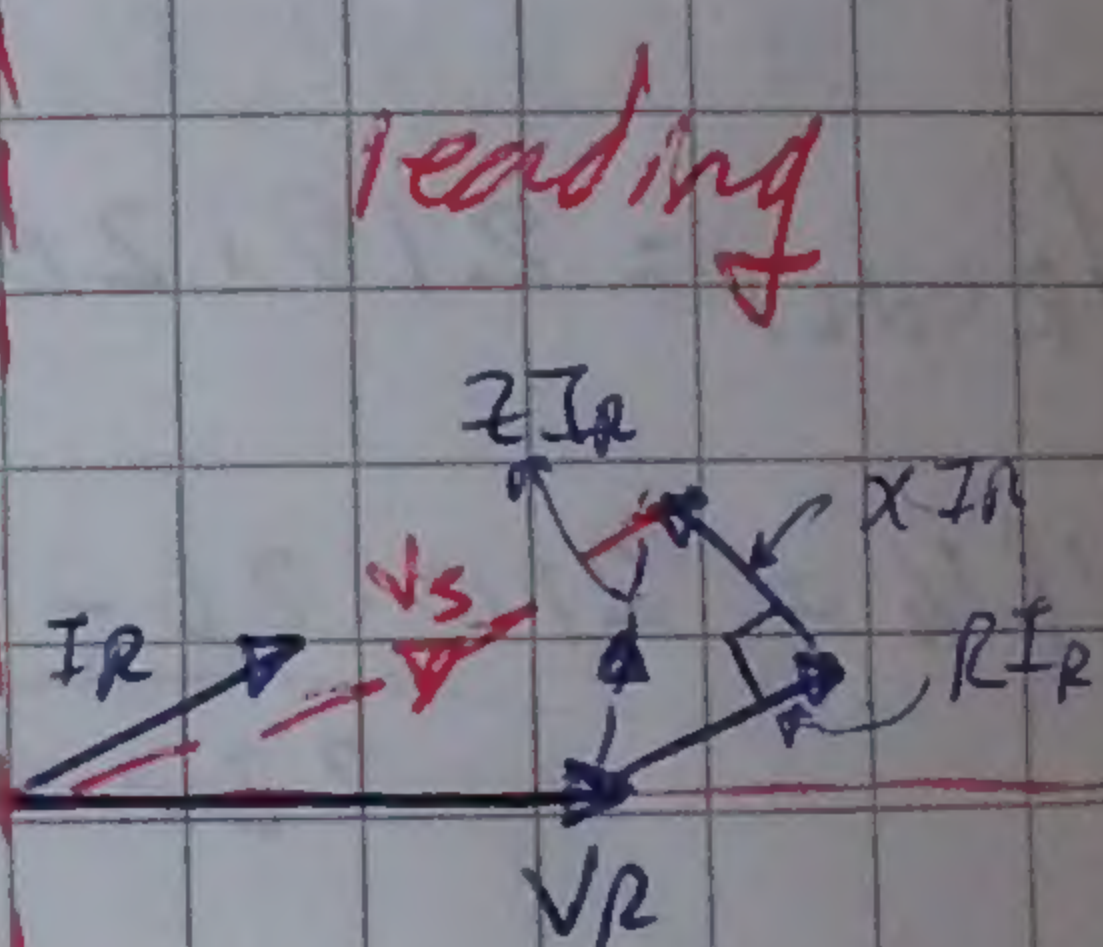 leading
ZI_R
XI_R
V_S
I_R
RI_R
V_R